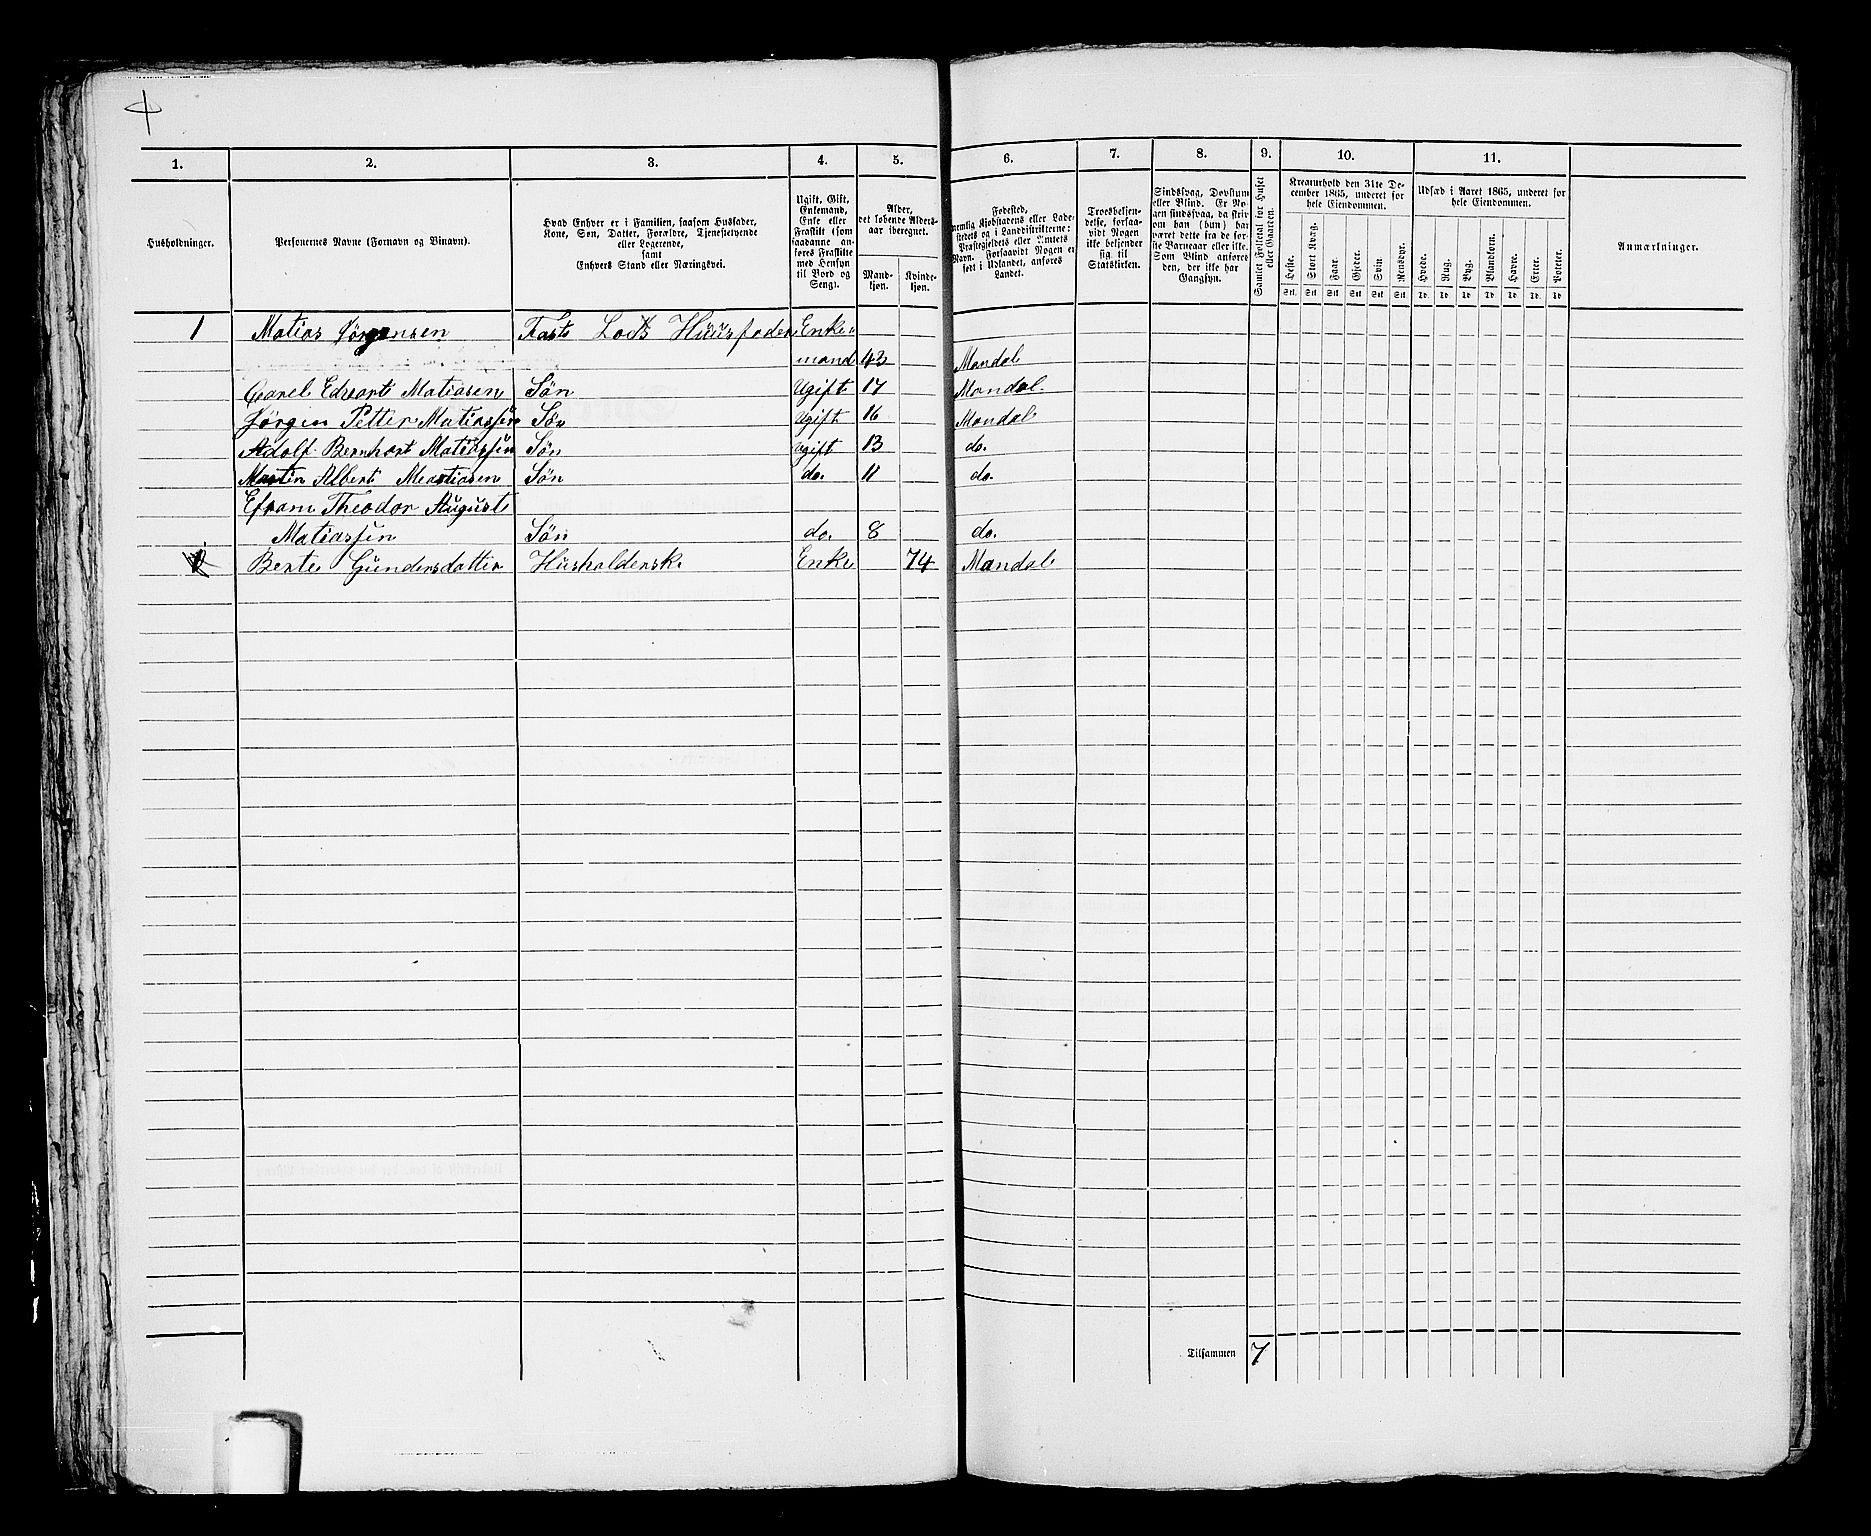 1. 2. 3. 4. 5. 6. 7. 8. 9. 10. 11.
Husholdninger.
Personernes Navne (Fornavn og Binavn).
Hvad Enhver er i Familien, saasom Husfader,
Kone, Søn, Datter, Forældre, Tjenestetyende
eller Logerende,
samt
Enhvers Stand eller Næringsvei.
Ugift, Gift,
Enkemand,
Enke eller
Fraskilt (som
saadanne an-
føres Fraskilte
med Hensyn
til Bord og
Seng).
Alder,
det løbende Alders-
aar iberegnet.
Mand-
kjøn.
Kvinde-
kjøn.
Fødested,
nemlig Kjøbstadens eller Lade-
stedets og i Landdistrikterne:
Præstegjeldets eller Amtets
Navn. Forsaavidt Nogen er
født i Udlandet, anføres
Landet.
Troesbekjen-
delse, forsaa-
vidt Nogen
ikke bekjender
sig til
Statskirken.
Sindssvag, Døvstum
eller Blind. Er No-
gen sindssvag, da skriv
om han (hun) har
været dette fra de før-
ste Barneaar eller ikke.
Som Blind anføres
den, der ikke har
Gangsyn.
Samlet Folketal for Huset
eller Gaarden.
Kreaturhold den 31te De-
cember 1865, underet for
hele Eiendommen.
Heste. Stort Kvæg. Faar. Gjeder. Svin. Rensdyr.
Stk. Stk. Stk. Stk. Stk. Stk.
Udsæd i Aaret 1865, underet for
hele Eiendommen.
Hvede. Rug. Byg. Blandkorn. Havre. Erter. Poteter.
Td. Td. Td. Td. Td. Td. Td.
Anmærkninger.
1 Matias Jørgensen Fast Lods Huusfader Enke=
mand 43 Mandal
Carel Edvart Matiasen Søn Ugift 17 Mandal.
Jørgen Petter Matiassen Søn Ugift 16 Mandal
Adolf Bernhart Matiassen Søn ugift 13 do.
Martin Albert Matiasen Søn do. 11 do.
Efram Theodor August
Matiassen Søn do. 8 do.
Berte Gundersdatter Husholderske Enke 74 Mandal
Tilsammen 7